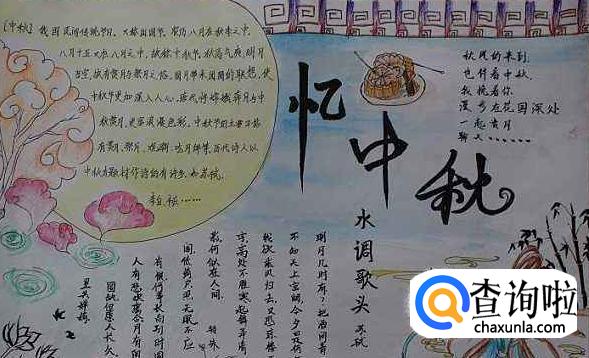 [中秋] 我国民间传统节日、又称团圆节、农历八月在秋季之中、
八月十五又在八月之中,故称中秋节、秋高气爽,明月
当空,故有赏月与祭月之俗。圆月带来团圆的联想,使
中秋节更加深入人心。唐代将嫦娥奔月与中
秋赏月,更富浪漫色彩。中秋节的主要习俗
有赏月、祭月、观潮、吃月饼等。历代诗人以
中秋为题材作诗的有许多。如苏轼、
秋风的来到
也伴着中秋
我挽着你
漫步在花园深处
一起赏月
聊天……
忆中秋
水调歌头 苏轼
明月几时有?把酒问青
不知天上宫阙,今夕是何
我欲乘风归去,又恐琼楼
宇,高处不胜寒,起舞弄清
影,何似在人间。 转朱
阁,低绮户,照无眠。不应
有恨,何事长向别时圆
人有悲欢离合,月有阴
圆缺 但愿人长久
里共婵娟。
查询啦
chaxunla.com